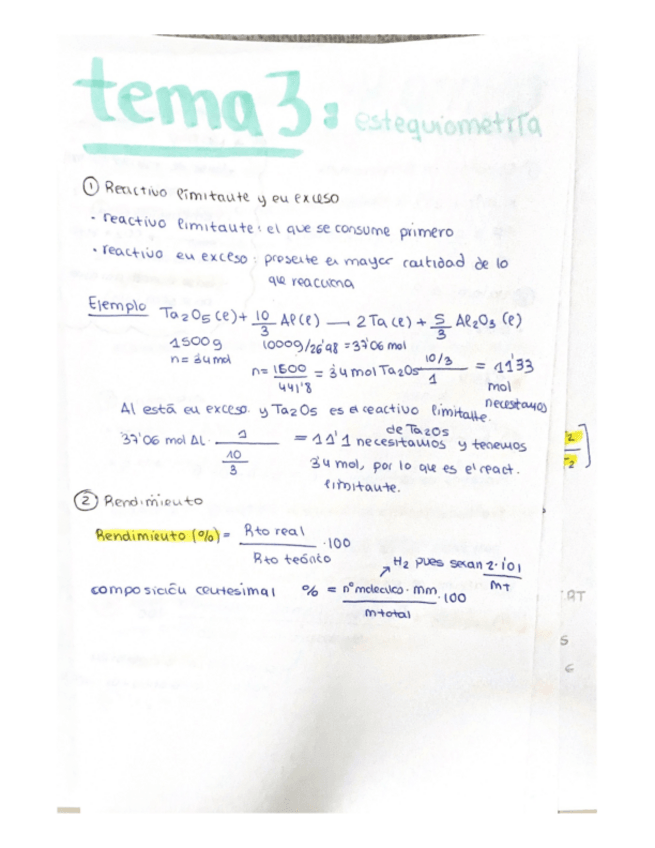 tema 3: estequiometría
① Reactivo limitante y en exceso
· reactivo limitante: el que se consume primero
· reactivo en exceso: presente en mayor cantidad de lo
que reacciona
Ejemplo Ta2O5(l) + 10/3 Al(l) — 2Ta(l) + 5/3 Al2O3(l)
1500g 1000g/26'98 = 37'06 mol
n = 3'4 mol n = 1500/441'8 = 3'4 mol Ta2O5 · 10/3/1 = 11'33
mol
necesitamos
Al está en exceso y Ta2O5 es el reactivo limitante.
37'06 mol Al · 1/(10/3) = 11'1 necesitamos y tenemos
de Ta2O5
3'4 mol, por lo que es el react.
limitante.
② Rendimiento
Rendimiento (%) = Rto real/Rto teórico · 100
H2 pues seran 2·1'01/mT
composición centesimal % = nº moleculas · mm/mtotal · 100